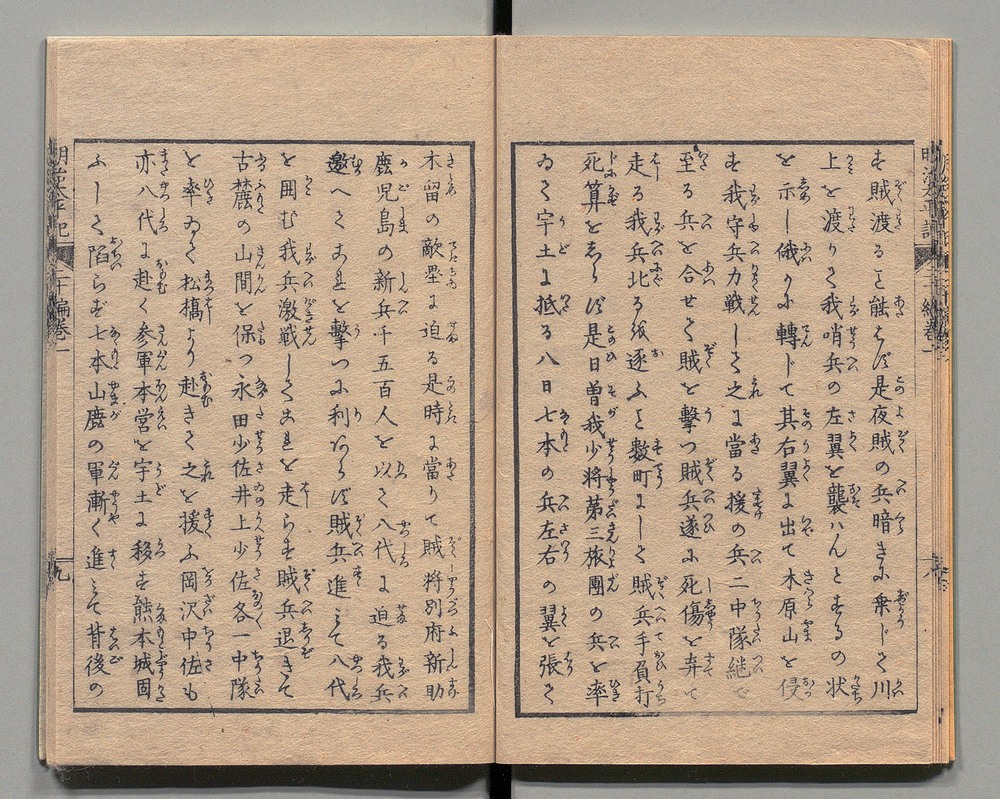 も賊渡ること能はず是夜賊の兵暗きに乗じて川
上を渡りて我哨兵の左翼を襲ハんとするの状
を示し俄かに轉じて其右翼に出て木原山を侵
す我守兵力戦して之に當る援の兵二中隊継で
至る兵を合せて賊を撃つ賊兵遂に死傷を弃て
走る我兵北るを逐ふこと數町にして賊兵手負打
死算をしらず是日曽我少将第三旅團の兵を率
ゐて宇土に抵る八日七本の兵左右の翼を張て
木留の敵塁に迫る是時に當りて賊将別府新助
鹿児島の新兵千五百人を以て八代に迫る我兵
邀へてこれを撃つに利あらず賊兵進ミて八代
を囲む我兵激戦してこれを走らす賊兵退きて
古麓の山間を保つ永田少佐井上少佐各一中隊
を率ゐて松橋より赴きて之を援ふ岡沢中佐も
亦八代に赴く参軍本営を宇土に移す熊本城固
ふして陥らず七本山鹿の軍漸く進ミて背後の
明治太平記
二十編巻一
九